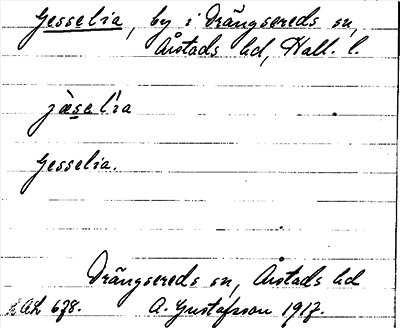 Gesselia, by i Drängsereds sn,
Årstads hd, Hall. l.
jæ̀selìa
Gesselia.
Drängsereds sn, Årstads hd
678. A. Gustafsson 1917.